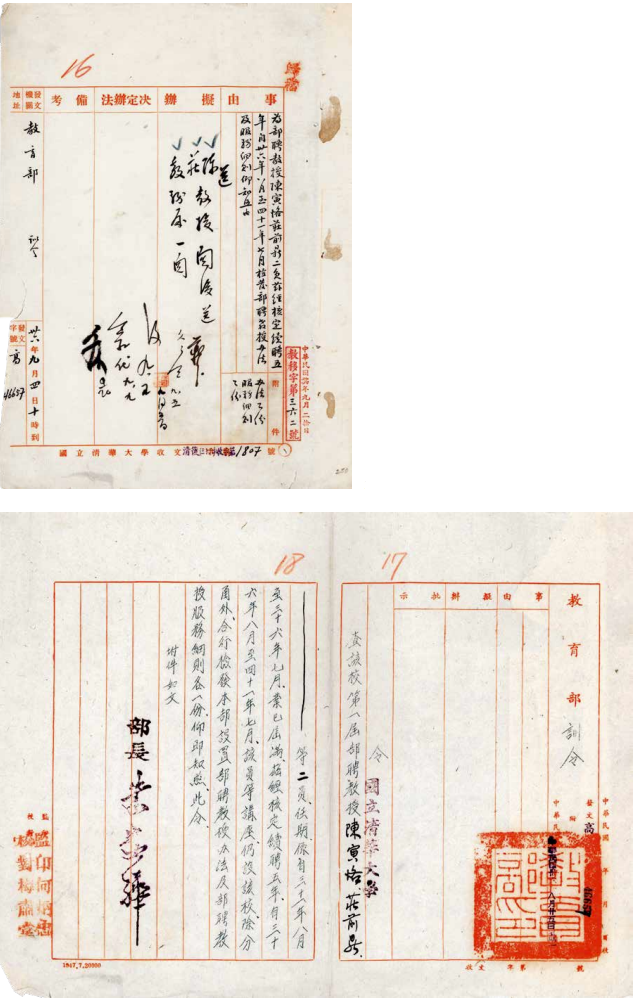 16
歸檔
事由
擬辦
決定辦法
備考
發文機關地址
為部聘教授陳寅恪莊前鼎二員茲經核定續聘五
年自卅六年八月至四十一年七月檢發部聘教授辦法
及服務細則仰知照由
附件
辦法乙份
服務細則
乙份
送
陳
莊教授閱後送
教務處一閱
教育部
訓令
發文字號
高
46657
卅六年九月四日十時到
教移字第三六二號
國立清華大學收文
1807
號
17
教育部訓令
事由
擬辦
批示
中華民國 年 月 日
發文
高
令
國立清華大學
查該校第一屆部聘教授陳寅恪、莊前鼎、
收文 字第 號
18
等二員、任期係自三十一年八月
至三十六年七月、業已屆滿、茲經核定續聘五年、自三十
六年八月至四十一年七月、該員等講座、仍設該校、除分
函外、合行檢發本部設置部聘教授辦法及部聘教
授服務細則各一份、仰即知照、此令、
附件如文
部長
朱家驊
監印
校對
1947.7.20000